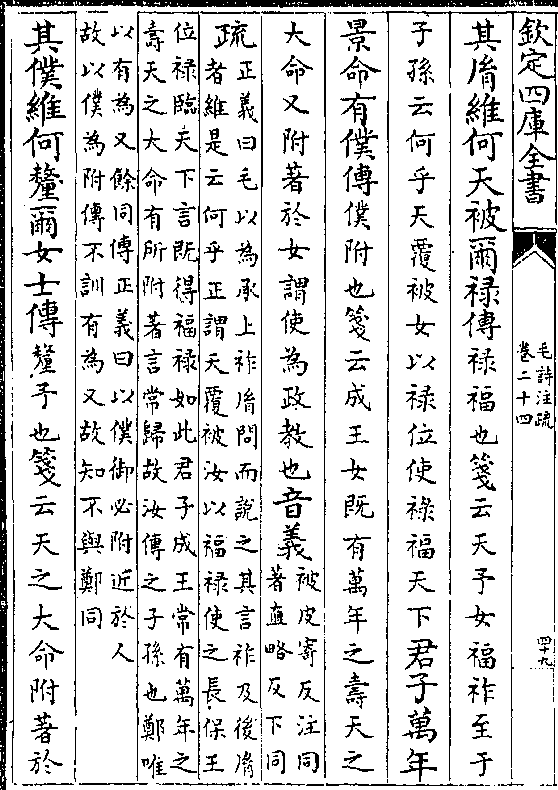 欽定四庫全書
毛詩注疏
卷二十四
四十九
其胤維何天被爾禄傳禄福也箋云天予女福祚至于
子孫云何乎天覆被女以禄位使祿福天下君子萬年
景命有僕傳僕附也箋云成王女既有萬年之壽天之
大命又附著於女謂使為政教也音義
被皮寄反注同
著直略反下同
疏
正義曰毛以為承上祚胤問而說之其言祚及後胤
者維是云何乎正謂天覆被汝以福禄使之長保王
位禄臨天下言既得福禄如此君子成王常有萬年之
壽天之大命有所附著言常歸故汝傳之子孫也鄭唯
以有為又餘同傳正義曰以僕御必附近於人
故以僕為附傳不訓有為又故知不與鄭同
其僕維何釐爾女士傳釐予也箋云天之大命附著於